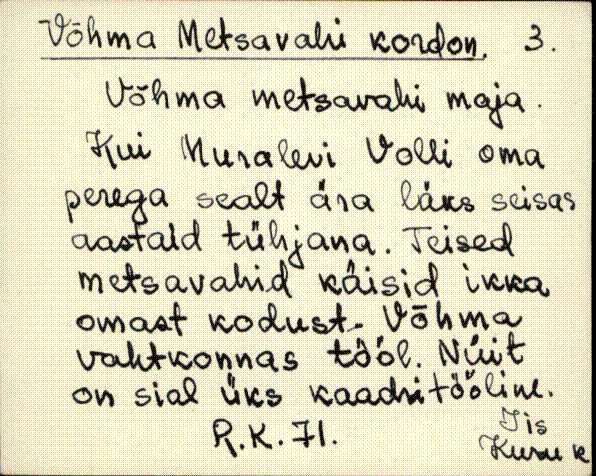 Võhma Metsavahi kordon. 3.
Võhma metsavahi maja.
Kui Muralevi Volli oma
perega sealt ära läks seisas
aastaid tühjana. Teised
metsavahid käisid ikka
omast kodust. Võhma
vahtkonnas tööl. Nüit
on sial üks kaadritööline.
R.K. 71.
Iis
Kuru k